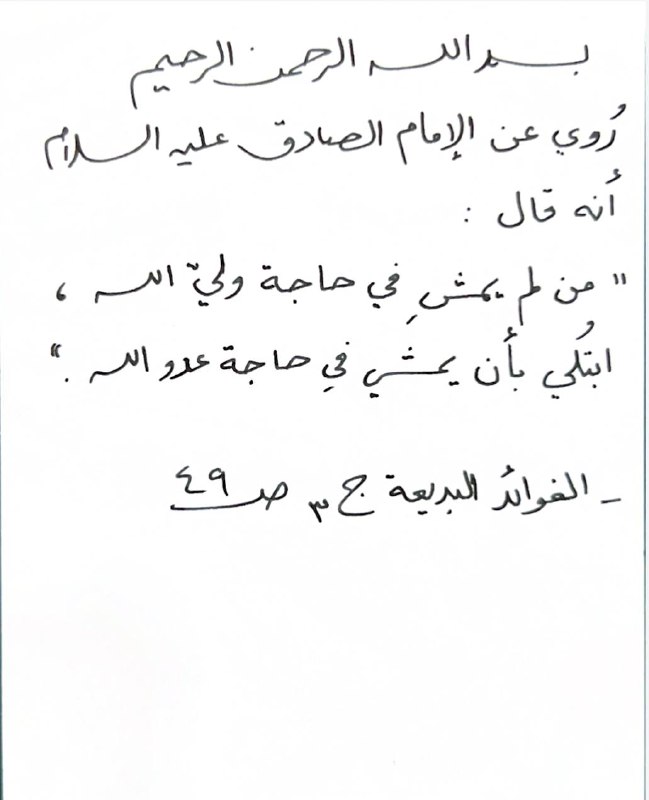 بسم الله الرحمن الرحيم
رُوي عن الإمام الصادق عليه السلام
أنه قال :
" من لم يمشِ في حاجة وليّ الله ،
ابتُلي بأن يمشي في حاجة عدو الله . "
- الفوائد البديعة ج ٣ ص ٤٩